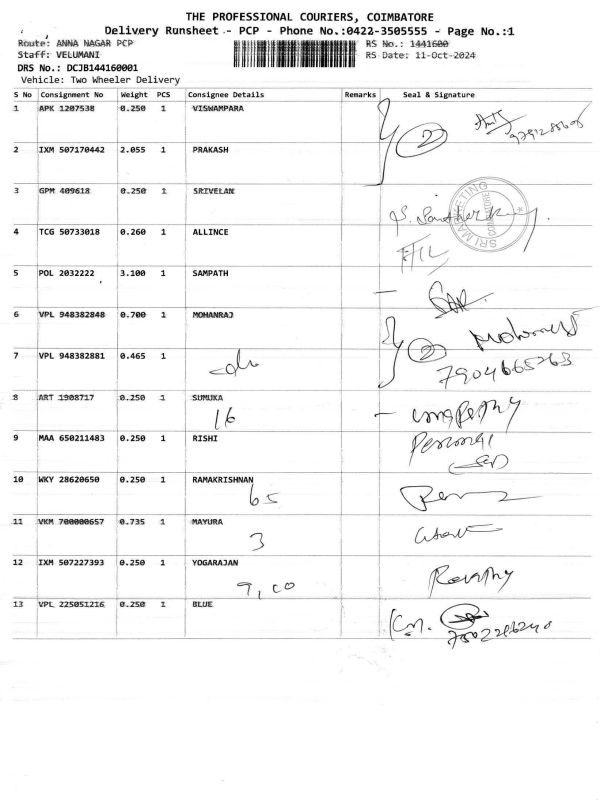 THE PROFESSIONAL COURIERS, COIMBATORE
Delivery Runsheet - PCP - Phone No.:0422-3505555 - Page No.:1
Route: ANNA NAGAR PCP RS No.: 1441600
Staff: VELUMANI RS Date: 11-Oct-2024
DRS No.: DCJB144160001
Vehicle: Two Wheeler Delivery
S No Consignment No Weight PCS Consignee Details Remarks Seal & Signature
1 APK 1207538 0.250 1 VISWAMPARA
2
2 IXM 507170442 2.055 1 PRAKASH
3 GPM 409618 0.250 1 SRIVELAN
SRI MARKETING COIMBATORE
4 TCG 50733018 0.260 1 ALLINCE
5 POL 2032222 3.100 1 SAMPATH
6 VPL 948382848 0.700 1 MOHANRAJ
2
7 VPL 948382881 0.465 1
7904665263
8 ART 1908717 0.250 1 SUMUKA
16
9 MAA 650211483 0.250 1 RISHI
10 WKY 28620650 0.250 1 RAMAKRISHNAN
65
11 VKM 700000657 0.735 1 MAYURA
3
12 IXM 507227393 0.250 1 YOGARAJAN
Revathy
13 VPL 225051216 0.250 1 BLUE